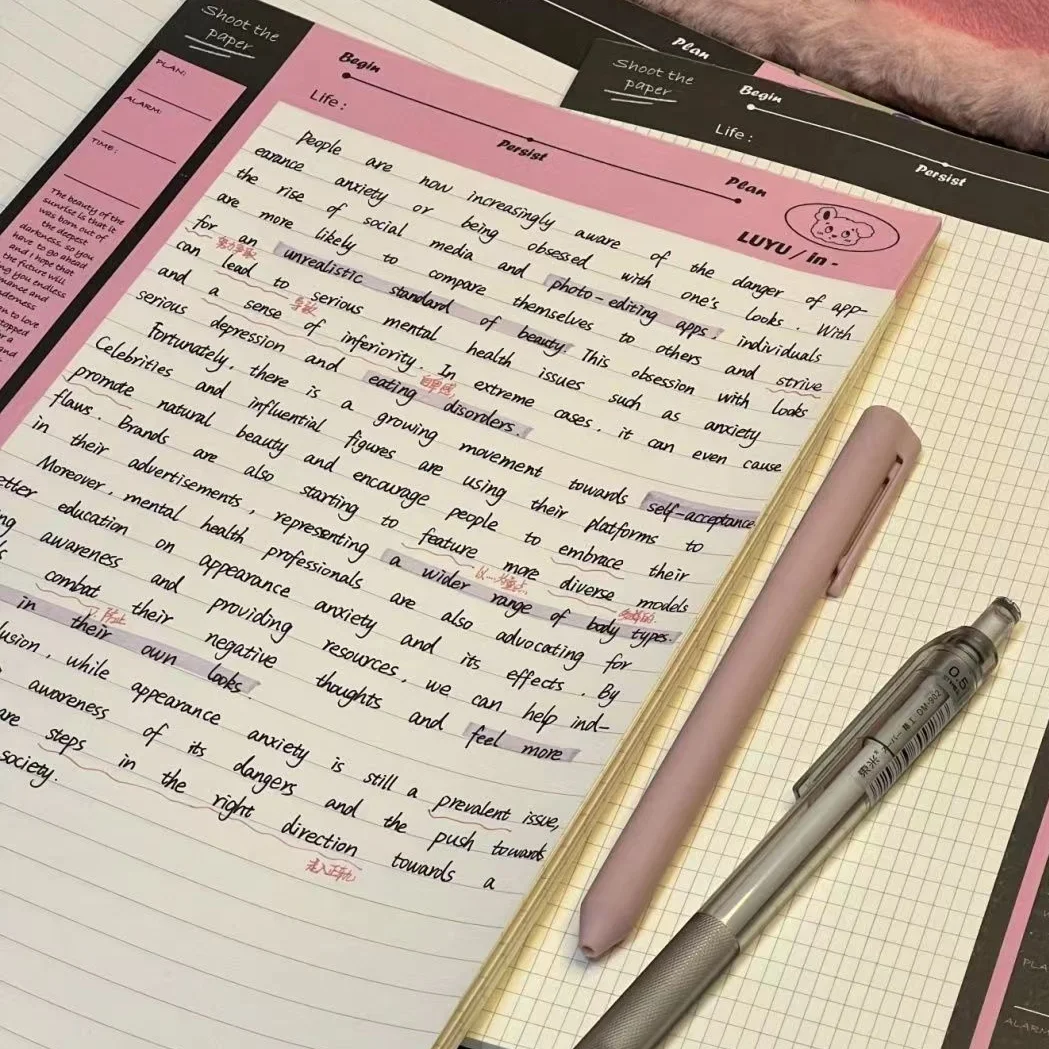 Shoot the
paper
PLAN:
ALARM:
TIME:
The beauty of the
sunrise is that it
was born out of
the deepest
darkness, so you
have to go ahead
and I hope that
the future will
you endless
and
to love
and
Begin
Persist
Plan
Life:
LUYU / in -
People are now increasingly aware of the danger of app-
earance anxiety or being obsessed with one's looks. With
the rise of social media and photo-editing apps, individuals
are more likely to compare themselves to others and strive
for an unrealistic standard of beauty. This obsession with looks
can lead to serious mental health issues such as anxiety
导致
and a sense of inferiority. In extreme cases, it can even cause
自卑感
serious depression and eating disorders.
Fortunately, there is a growing movement towards self-acceptance
Celebrities and influential figures are using their platforms to
promote natural beauty and encourage people to embrace their
flaws. Brands are also starting to feature more diverse models
in their advertisements, representing a wider range of body types.
Moreover, mental health professionals are also advocating for
etter education on appearance anxiety and its effects. By
ng awareness and providing resources, we can help ind-
s combat their negative thoughts and feel more
in their own looks
lusion, while appearance anxiety is still a prevalent issue,
awareness of its dangers and the push towards
are steps in the right direction towards a
走入正轨
society.
Plan
Shoot the
paper
Begin
Life:
Persist
0.5
DM-902
PLA
ALARM